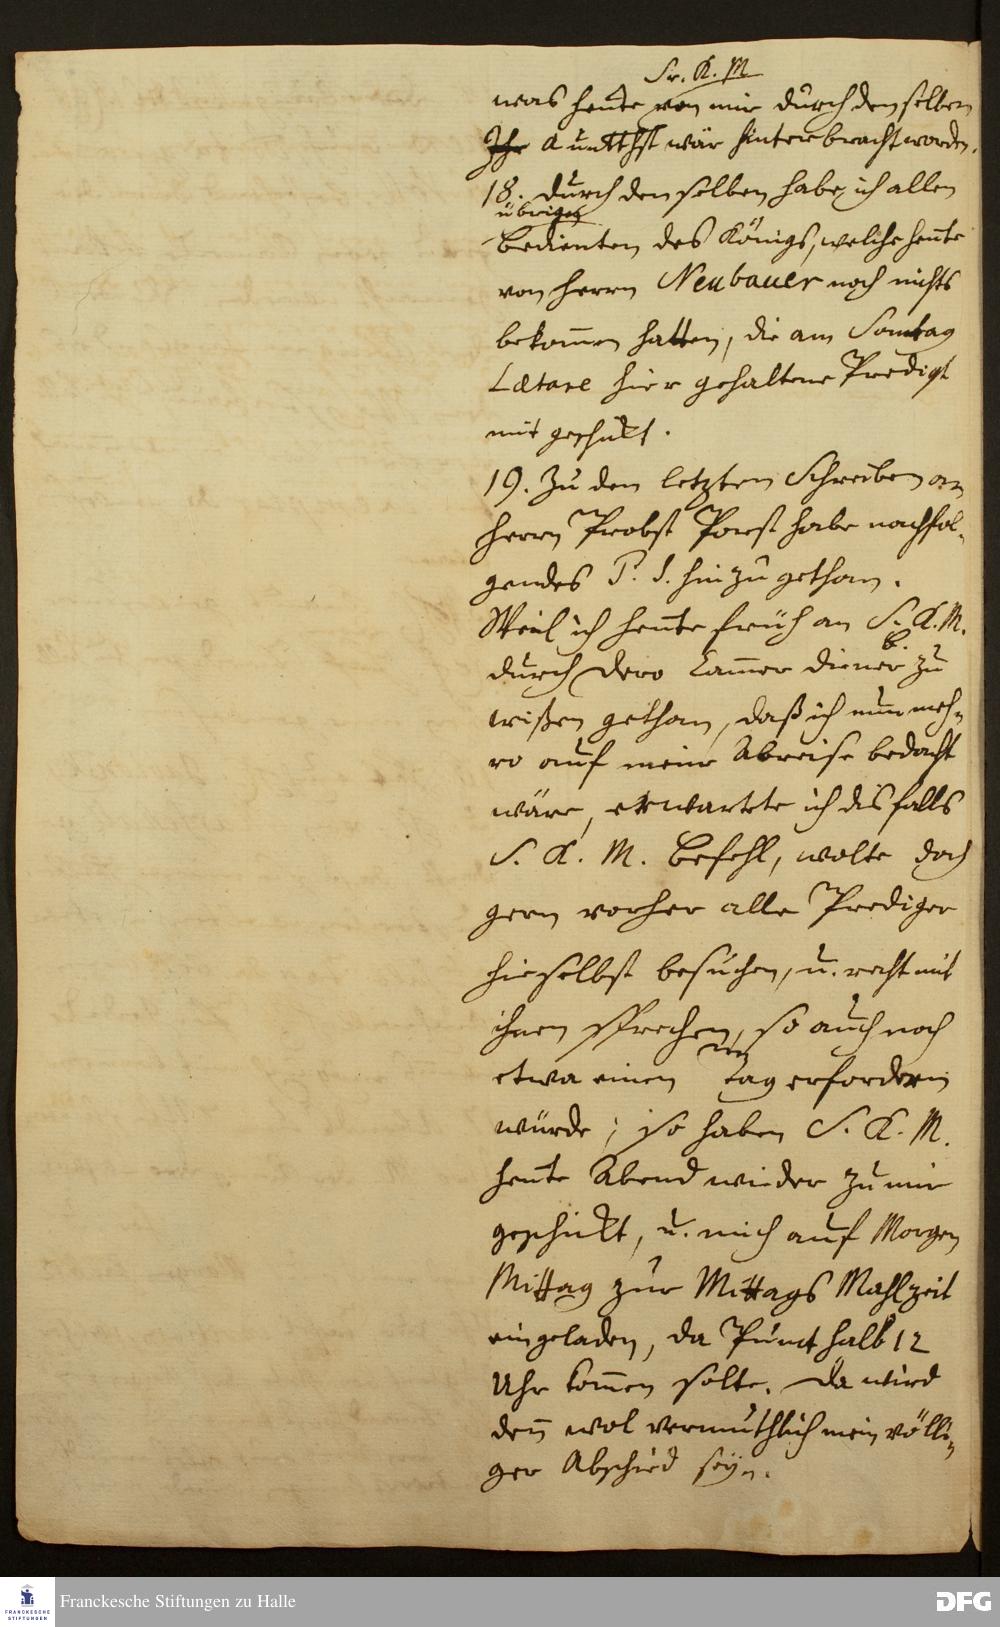 Sr. K. M
was heute von mir durch denselben
Ihr wär hinterbracht worden.
18. durch denselben habe ich allen
übrigen
bedienten des Königs, welche heute
von Herrn Neubauer noch nichts
bekom̄en hatten, die am Sontag
Lætare hier gehaltene Predigt
mit geschikt.
19. Zu den letzten Schreiben an
Herrn Probst Porst habe nachfol-
gendes P. S. hinzu gethan.
Weil ich heute früh an S. K. M.
durch dero Cam̄er diener zu
wißen gethan, daß ich nun meh-
ro auf meine Abreise bedacht
wäre, erwartete ich disfalls
S. K. M. Befehl, wolte doch
gern vorher alle Prediger
hieselbst besuchen, u. recht mit
ihnen sprechen, so auch noch
etwa einen Tag erfordern
würde; so haben S. K. M.
heute Abend wieder zu mir
geschikt, u. mich auf Morgen
Mittag zur Mittags Mahlzeit
eingeladen, da Punct halb 12
Uhr kom̄en solte. Da wird
den̄ wol vermuthlich mein völli-
ger Abschied seyn.
Franckesche Stiftungen zu Halle
FRANCKESCHE
STIFTUNGEN
DFG